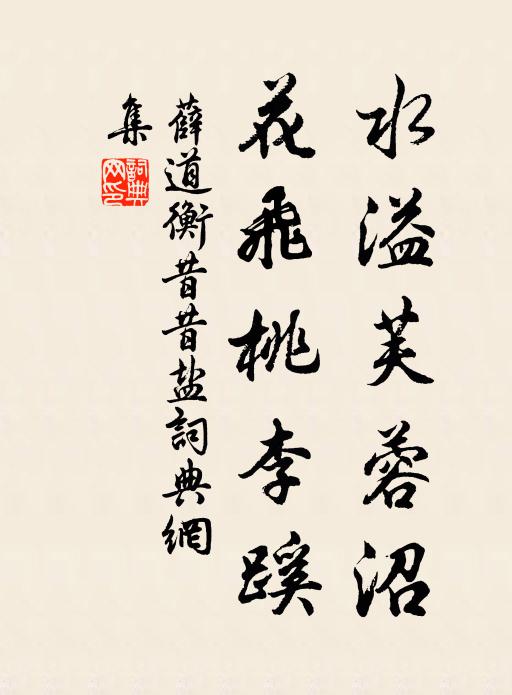 水溢芙蓉沼
花飛桃李蹊
薛道衡昔昔盐詞典網
集
詞典
网印